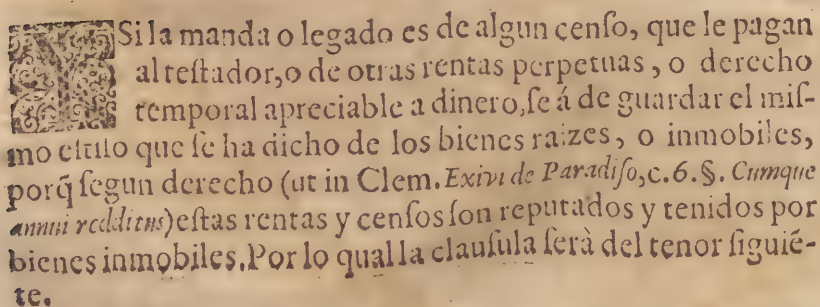 YSi la manda o legado es de algun cenſo, que le pagan
al teſtador, o de otras rentas perpetuas, o derecho
temporal apreciable a dinero, ſe á de guardar el miſ-
mo eſtilo que ſe ha dicho de los bienes raizes, o inmobiles,
porq̃ ſegun derecho (ut in Clem. Exivi de Paradiſo, c. 6. §. Cumque
annui redditus) eſtas rentas y cenſos ſon reputados y tenidos por
bienes inmobiles. Por lo qual la clauſula ſerà del tenor ſiguiẽ-
te.